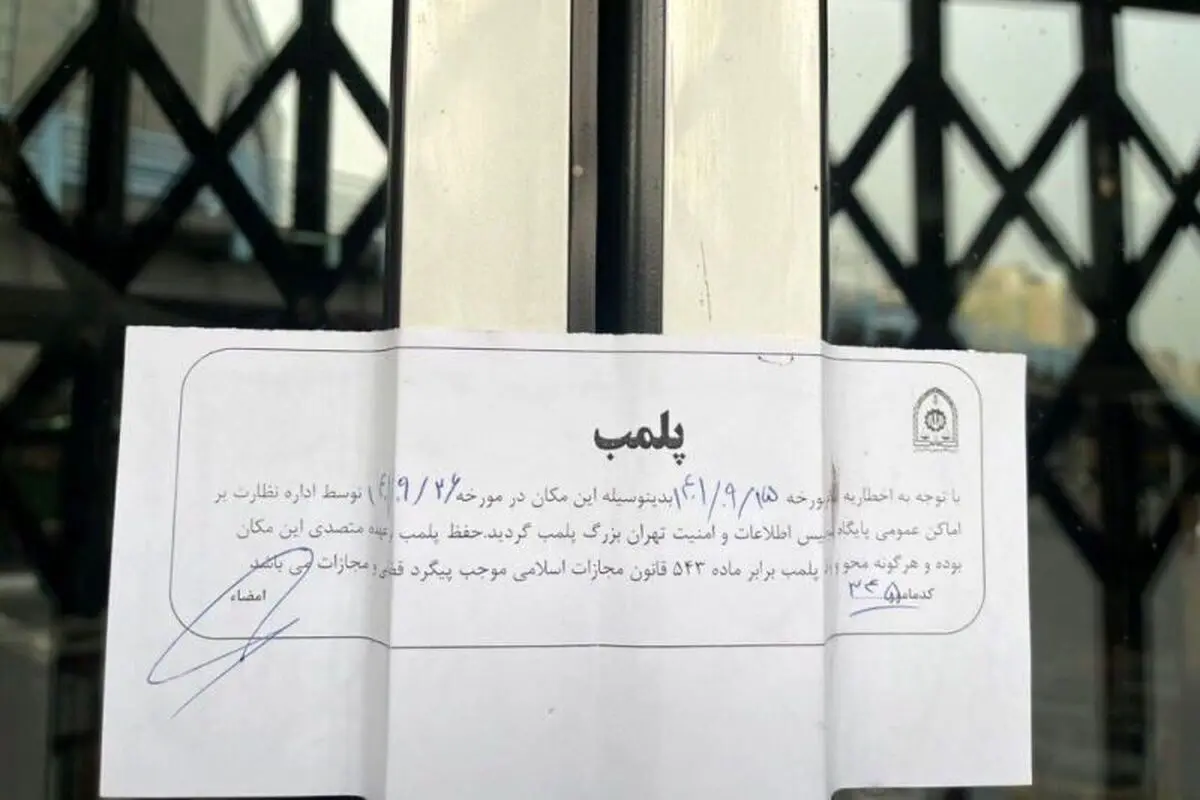 پلمب
با توجه به اخطاریه مورخه ۱۴۰۱/۰۹/۱۵ بدینوسیله این مکان در مورخه ۱۴۰۱/۰۹/۲۶ توسط اداره نظارت بر
اماکن عمومی پایگاه پلیس اطلاعات و امنیت تهران بزرگ پلمب گردید.حفظ پلمب بعهده متصدی این مکان
بوده و هرگونه محو و پلمب برابر ماده ۵۴۳ قانون مجازات اسلامی موجب پیگرد قضی و مجازات می باشد
کدمامور ۳۴۵
امضاء